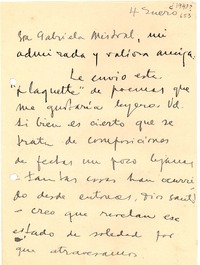 4 Enero
Sra Gabriela Mistral, mi
admirada y valiosa amiga.
Le envío este
"plaquette" de poemas que
me gustaría leyera Ud.
Si bien es cierto que se
trata de composiciones
de fechas un poco lejanas
- tantas cosas han ocurri-
do desde entonces, Dios santo!
- creo que revelan ese
estado de soledad por
que atravesamos